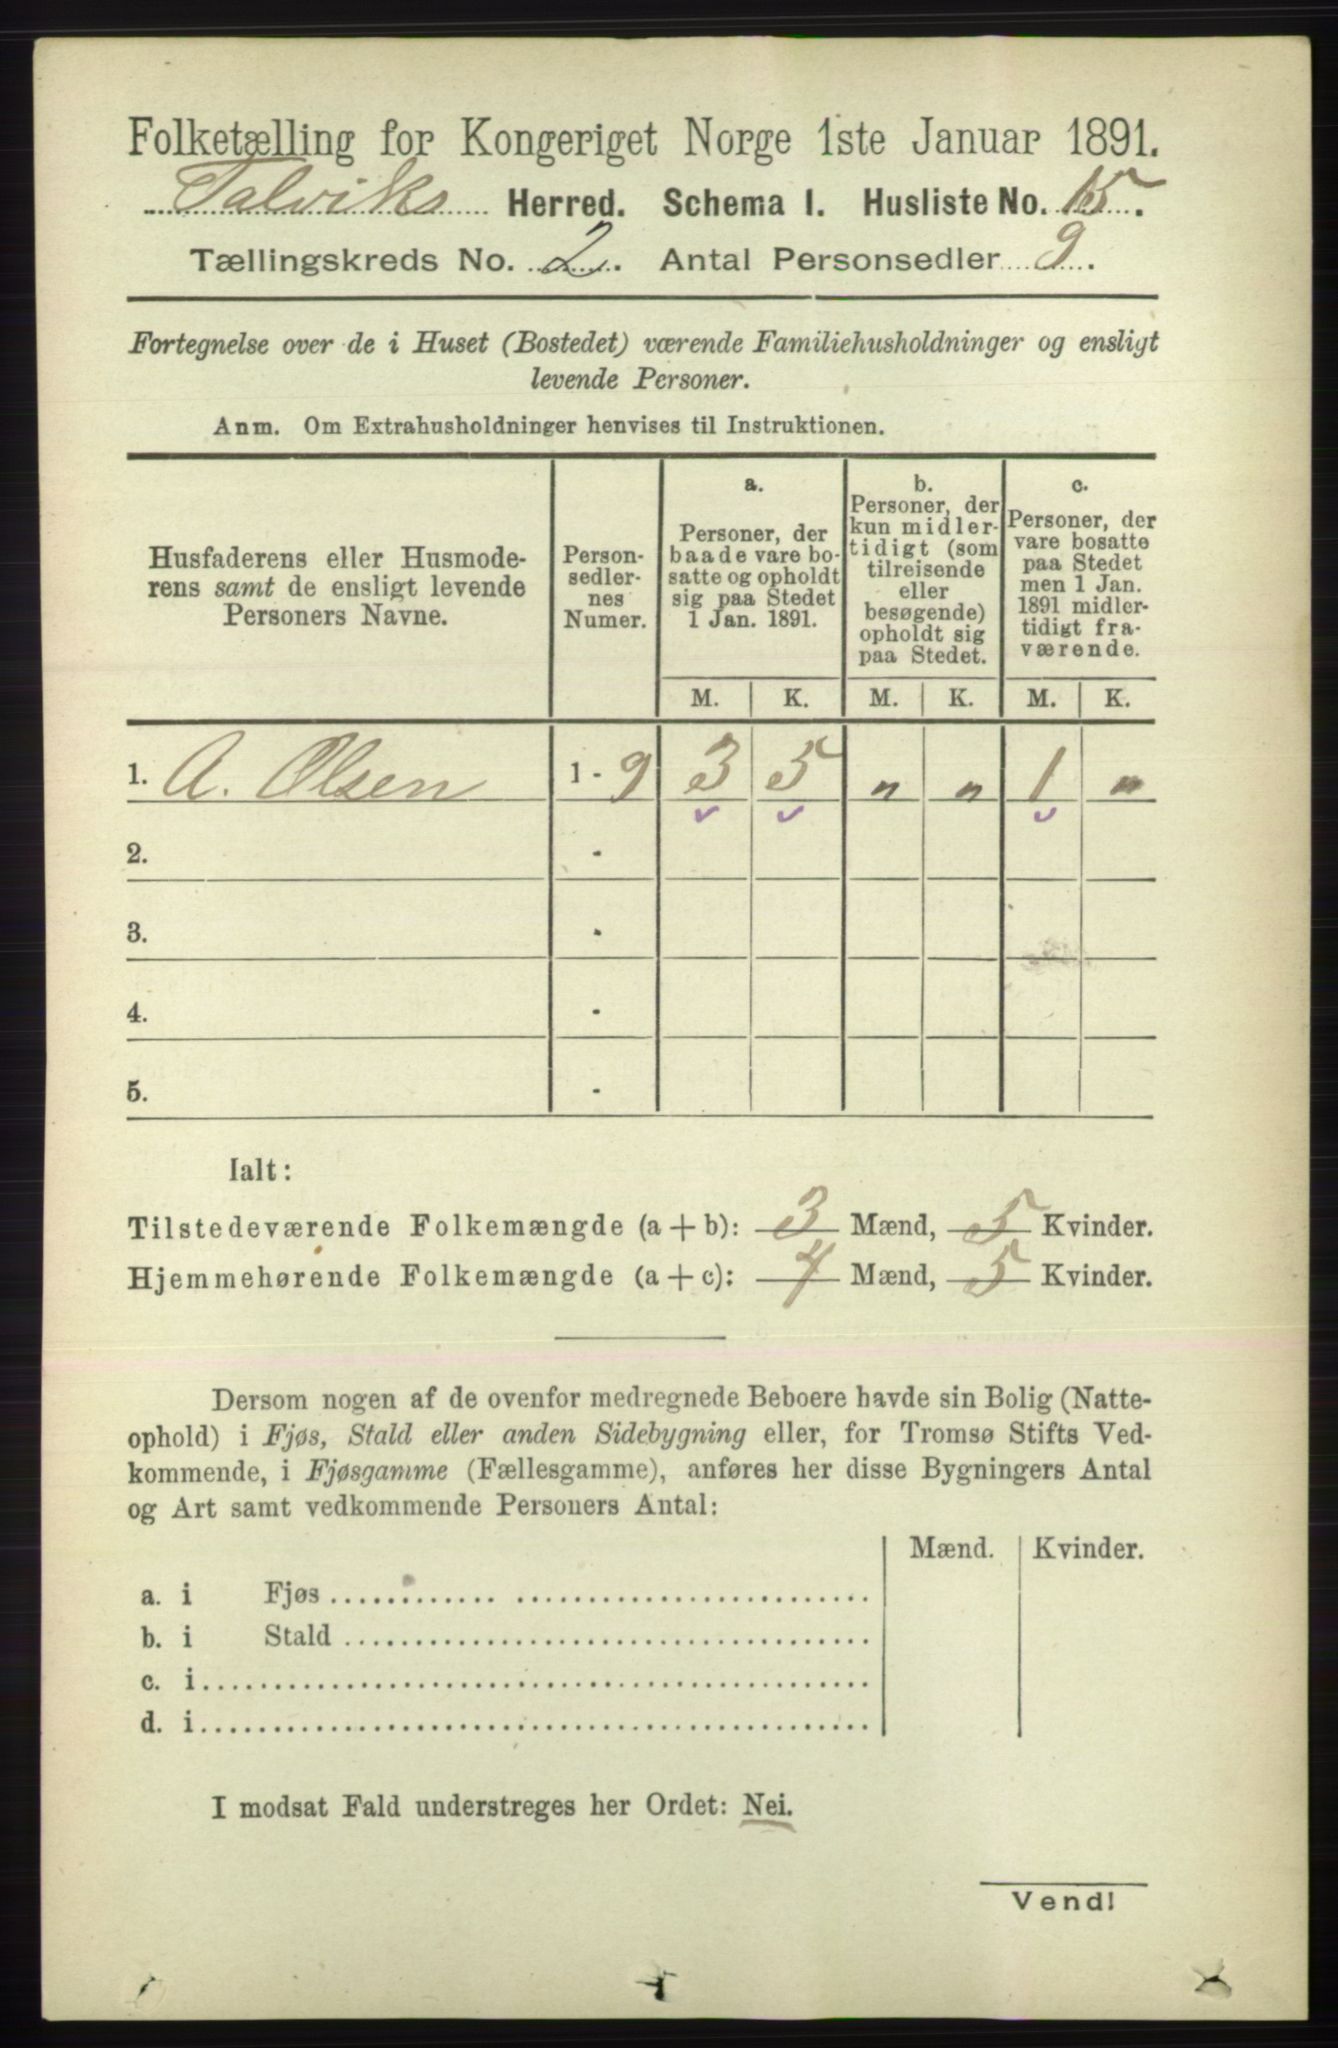 Folketælling for Kongeriget Norge 1ste Januar 1891.
Talviks Herred. Schema I. Husliste No. 15.
Tællingskreds No. 2. Antal Personsedler 9.
Fortegnelse over de i Huset (Bostedet) værende Familiehusholdninger og ensligt
levende Personer.
Anm. Om Extrahusholdninger henvises til Instruktionen.
Husfaderens eller Husmode-
rens samt de ensligt levende
Personers Navne.
Person-
sedler-
nes
Numer.
a.
Personer, der
baade vare bo-
satte og opholdt
sig paa Stedet
1 Jan. 1891.
b.
Personer, der
kun midler-
tidigt (som
tilreisende
eller
besøgende)
opholdt sig
paa Stedet.
c.
Personer, der
vare bosatte
paa Stedet
men 1 Jan.
1891 midler-
tidigt fra-
værende.
M. K. M. K. M. K.
1. A. Olsen 1 - 9 3 5 " " 1 "
2. -
3. -
4. -
5. -
Ialt:
Tilstedeværende Folkemængde (a + b): 3 Mænd, 5 Kvinder.
Hjemmehørende Folkemængde (a + c): 4 Mænd, 5 Kvinder.
Dersom nogen af de ovenfor medregnede Beboere havde sin Bolig (Natte-
ophold) i Fjøs, Stald eller anden Sidebygning eller, for Tromsø Stifts Ved-
kommende, i Fjøsgamme (Fællesgamme), anføres her disse Bygningers Antal
og Art samt vedkommende Personers Antal:
Mænd. Kvinder.
a. i Fjøs
b. i Stald
c. i
d. i
I modsat Fald understreges her Ordet: Nei.
Vend!